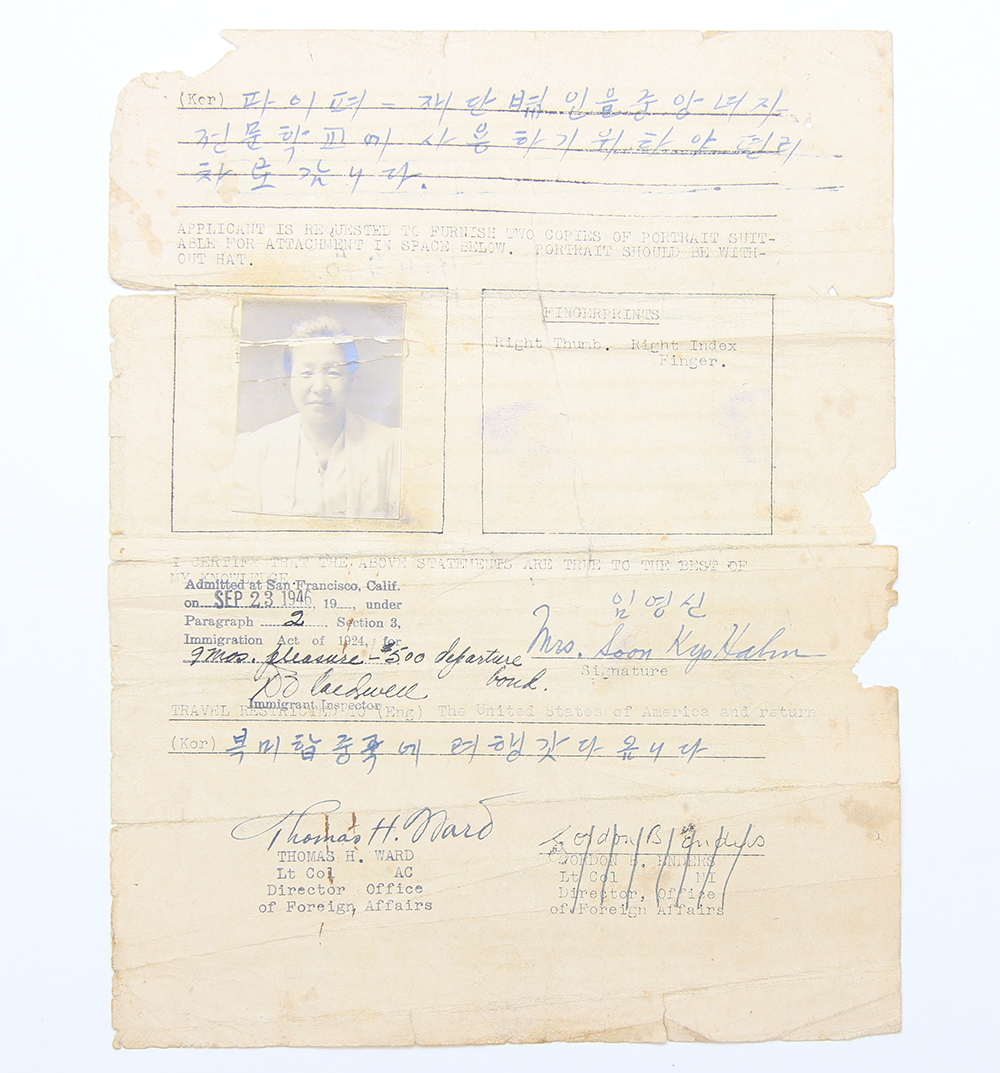 (Kor) 파이퍼 - 재단 법인을 중앙녀자
전문학교에 사용하기 위하야
차로 갑니다.
APPLICANT IS REQUESTED TO FURNISH TWO COPIES OF PORTRAIT SUIT-
ABLE FOR ATTACHMENT IN SPACE BELOW. PORTRAIT SHOULD BE WITH-
OUT HAT.
FINGERPRINTS
Right Thumb. Right Index
Finger.
I CERTIFY THAT THE ABOVE STATEMENTS ARE TRUE TO THE BEST OF
MY KNOWLEDGE
Admitted at San Francisco, Calif.
on SEP 23 1946, 19__, under
Paragraph 2, Section 3,
Immigration Act of 1924, for
9 mos. pleasure - $500 departure
bond.
Caldwell
Immigrant Inspector
임영신
Mrs. Soon Kyo Hahn
Signature
TRAVEL RESTRICTED TO (Eng) The United States of America and return
(Kor) 북미합중국에 려행갓다 옵니다
Thomas H. Ward
THOMAS H. WARD
Lt Col AC
Director Office
of Foreign Affairs
Gordon B. Enders
GORDON B. ENDERS
Lt Col MI
Director, Office
of Foreign Affairs